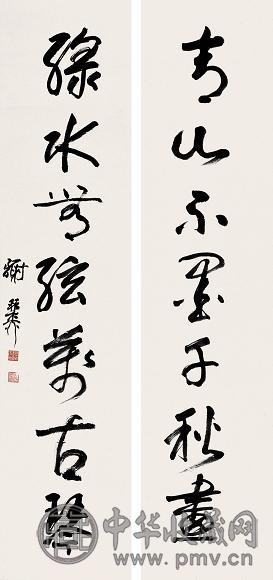 青山不墨千秋畫
綠水無弦萬古琴
謝稚柳
中华收藏网
www.pmv.cn